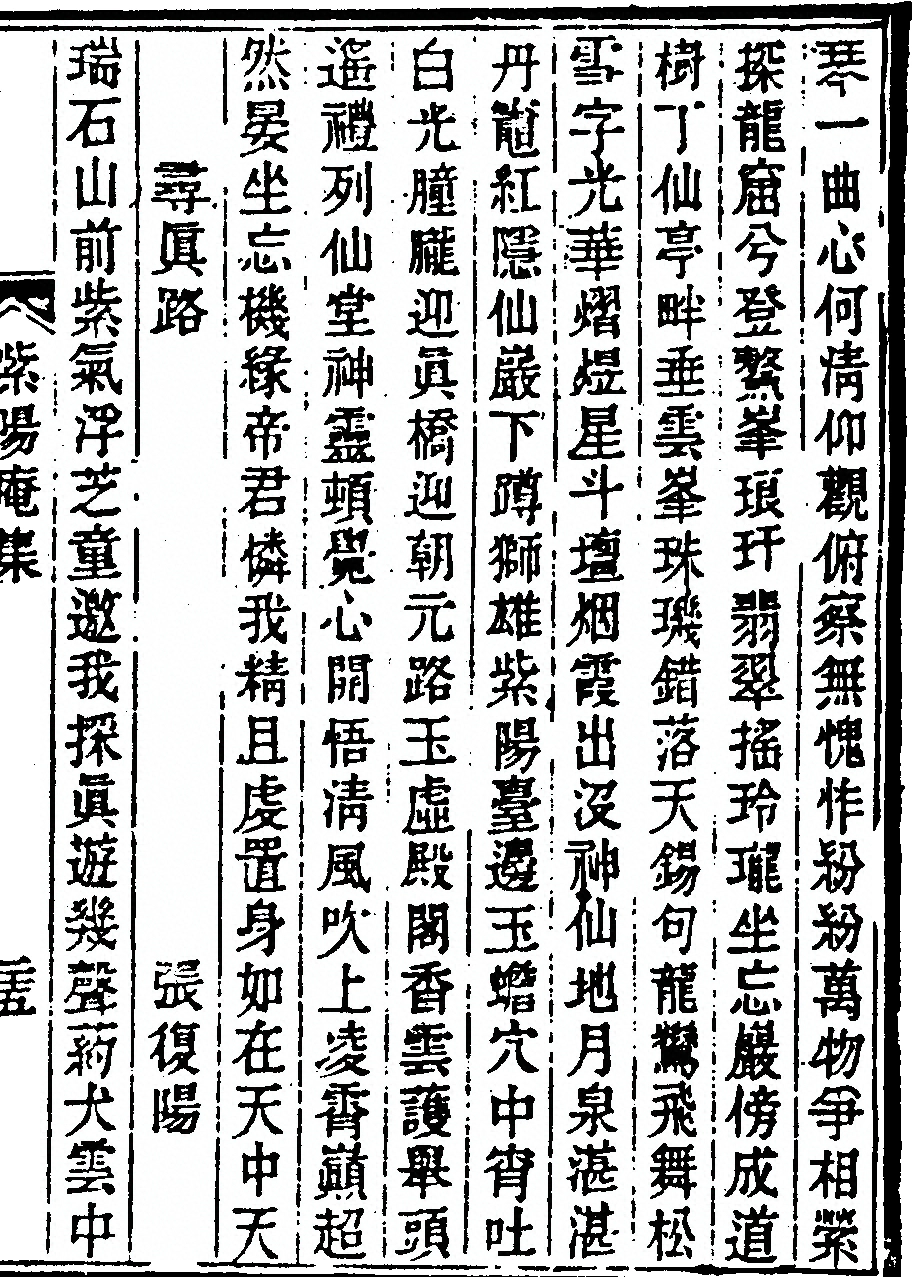 琴一曲心何清仰觀俯察無愧怍紛紛萬物爭相縈
探龍窟兮登鰲峯琅玕翡翠搖玲瓏坐忘巖傍成道
樹丁仙亭畔垂雲峯珠璣錯落天錫句龍鸞飛舞松
雪字光華熠煜星斗壇烟霞出沒神仙地月泉湛湛
丹竈紅隱仙巖下蹲獅雄紫陽臺邊玉蟾穴中宵吐
白光朣朧迎眞橋迎朝元路玉虛殿閣香雲護舉頭
遙禮列仙堂神靈頓覺心開悟清風吹上凌霄巔超
然晏坐忘機緣帝君憐我精且虔置身如在天中天
尋眞路 張復陽
瑞石山前紫氣浮芝童邀我探眞遊幾聲葯犬雲中
紫陽庵集 五